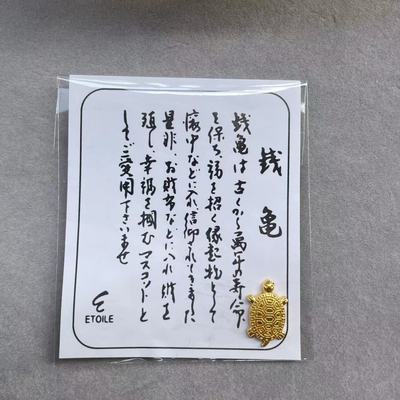 銭亀
銭亀は古くから萬年の寿命
を保ち福を招く縁起物として
懐中などに入れ信仰されてきました
是非、お財布などに入れ財を
殖し幸福を掴むマスコットと
してご愛用下さいませ
ETOILE